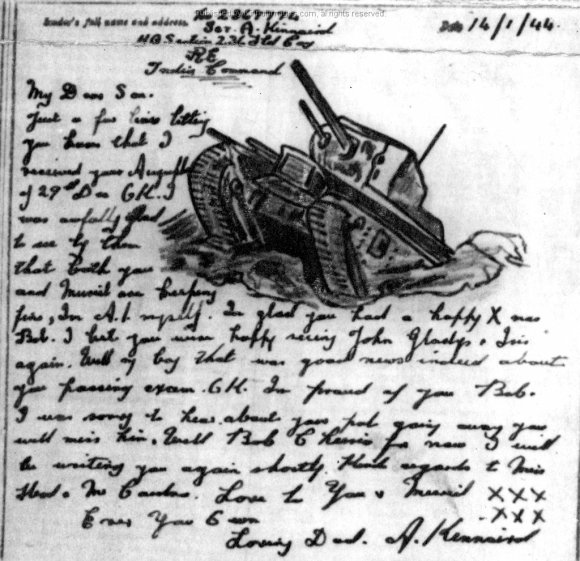 Sender's full name and address
all rights reserved
Date 14/1/44
Spr. A. Kennaird
HQ Section 2 Fld Coy
RE
India Command
My Dear Son.
Just a few lines letting
you know that I
received your
of 29th Dec O.K. I
was awfully glad
to see by them
that both you
and Muriel are keeping
fine, Im A.1 myself. Im glad you had a happy X mas
Bob. I bet you were happy seeing John Gladys & Iris
again. Well my boy that was good news indeed about
you passing exam. O.K. Im proud of you Bob.
I was sorry to hear about your pal going away you
will miss him. Well Bob Cheerio for now I will
be writing you again shortly. Kind regards to Miss
Love to You & Muriel XXX
Ever Your Own XXX
Loving Dad. A. Kennaird